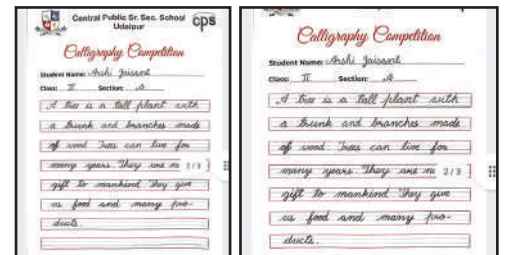 Central Public Sr. Sec. School
Udaipur
cps
Calligraphy Competition
Student Name: Arshi Jaissnt
Class: II Section: A
A tree is a tall plant with
a trunk and branches made
of wood Trees can live for
many years. They are 2/3
gift to mankind They give
us food and many pro-
ducts.
Calligraphy Competition
Student Name: Arshi Jaissnt
Class: II Section: A
A tree is a tall plant with
a trunk and branches made
of wood Trees can live for
many years. They are 2/3
gift to mankind They give
us food and many pro-
ducts.